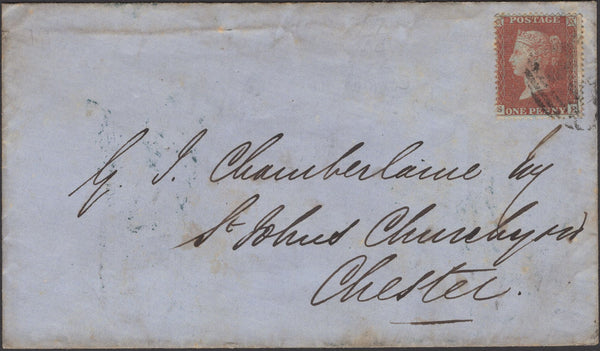 POSTAGE
ONE PENNY
G. J. Chamberlaine
St Johns Churchyard
Chester.